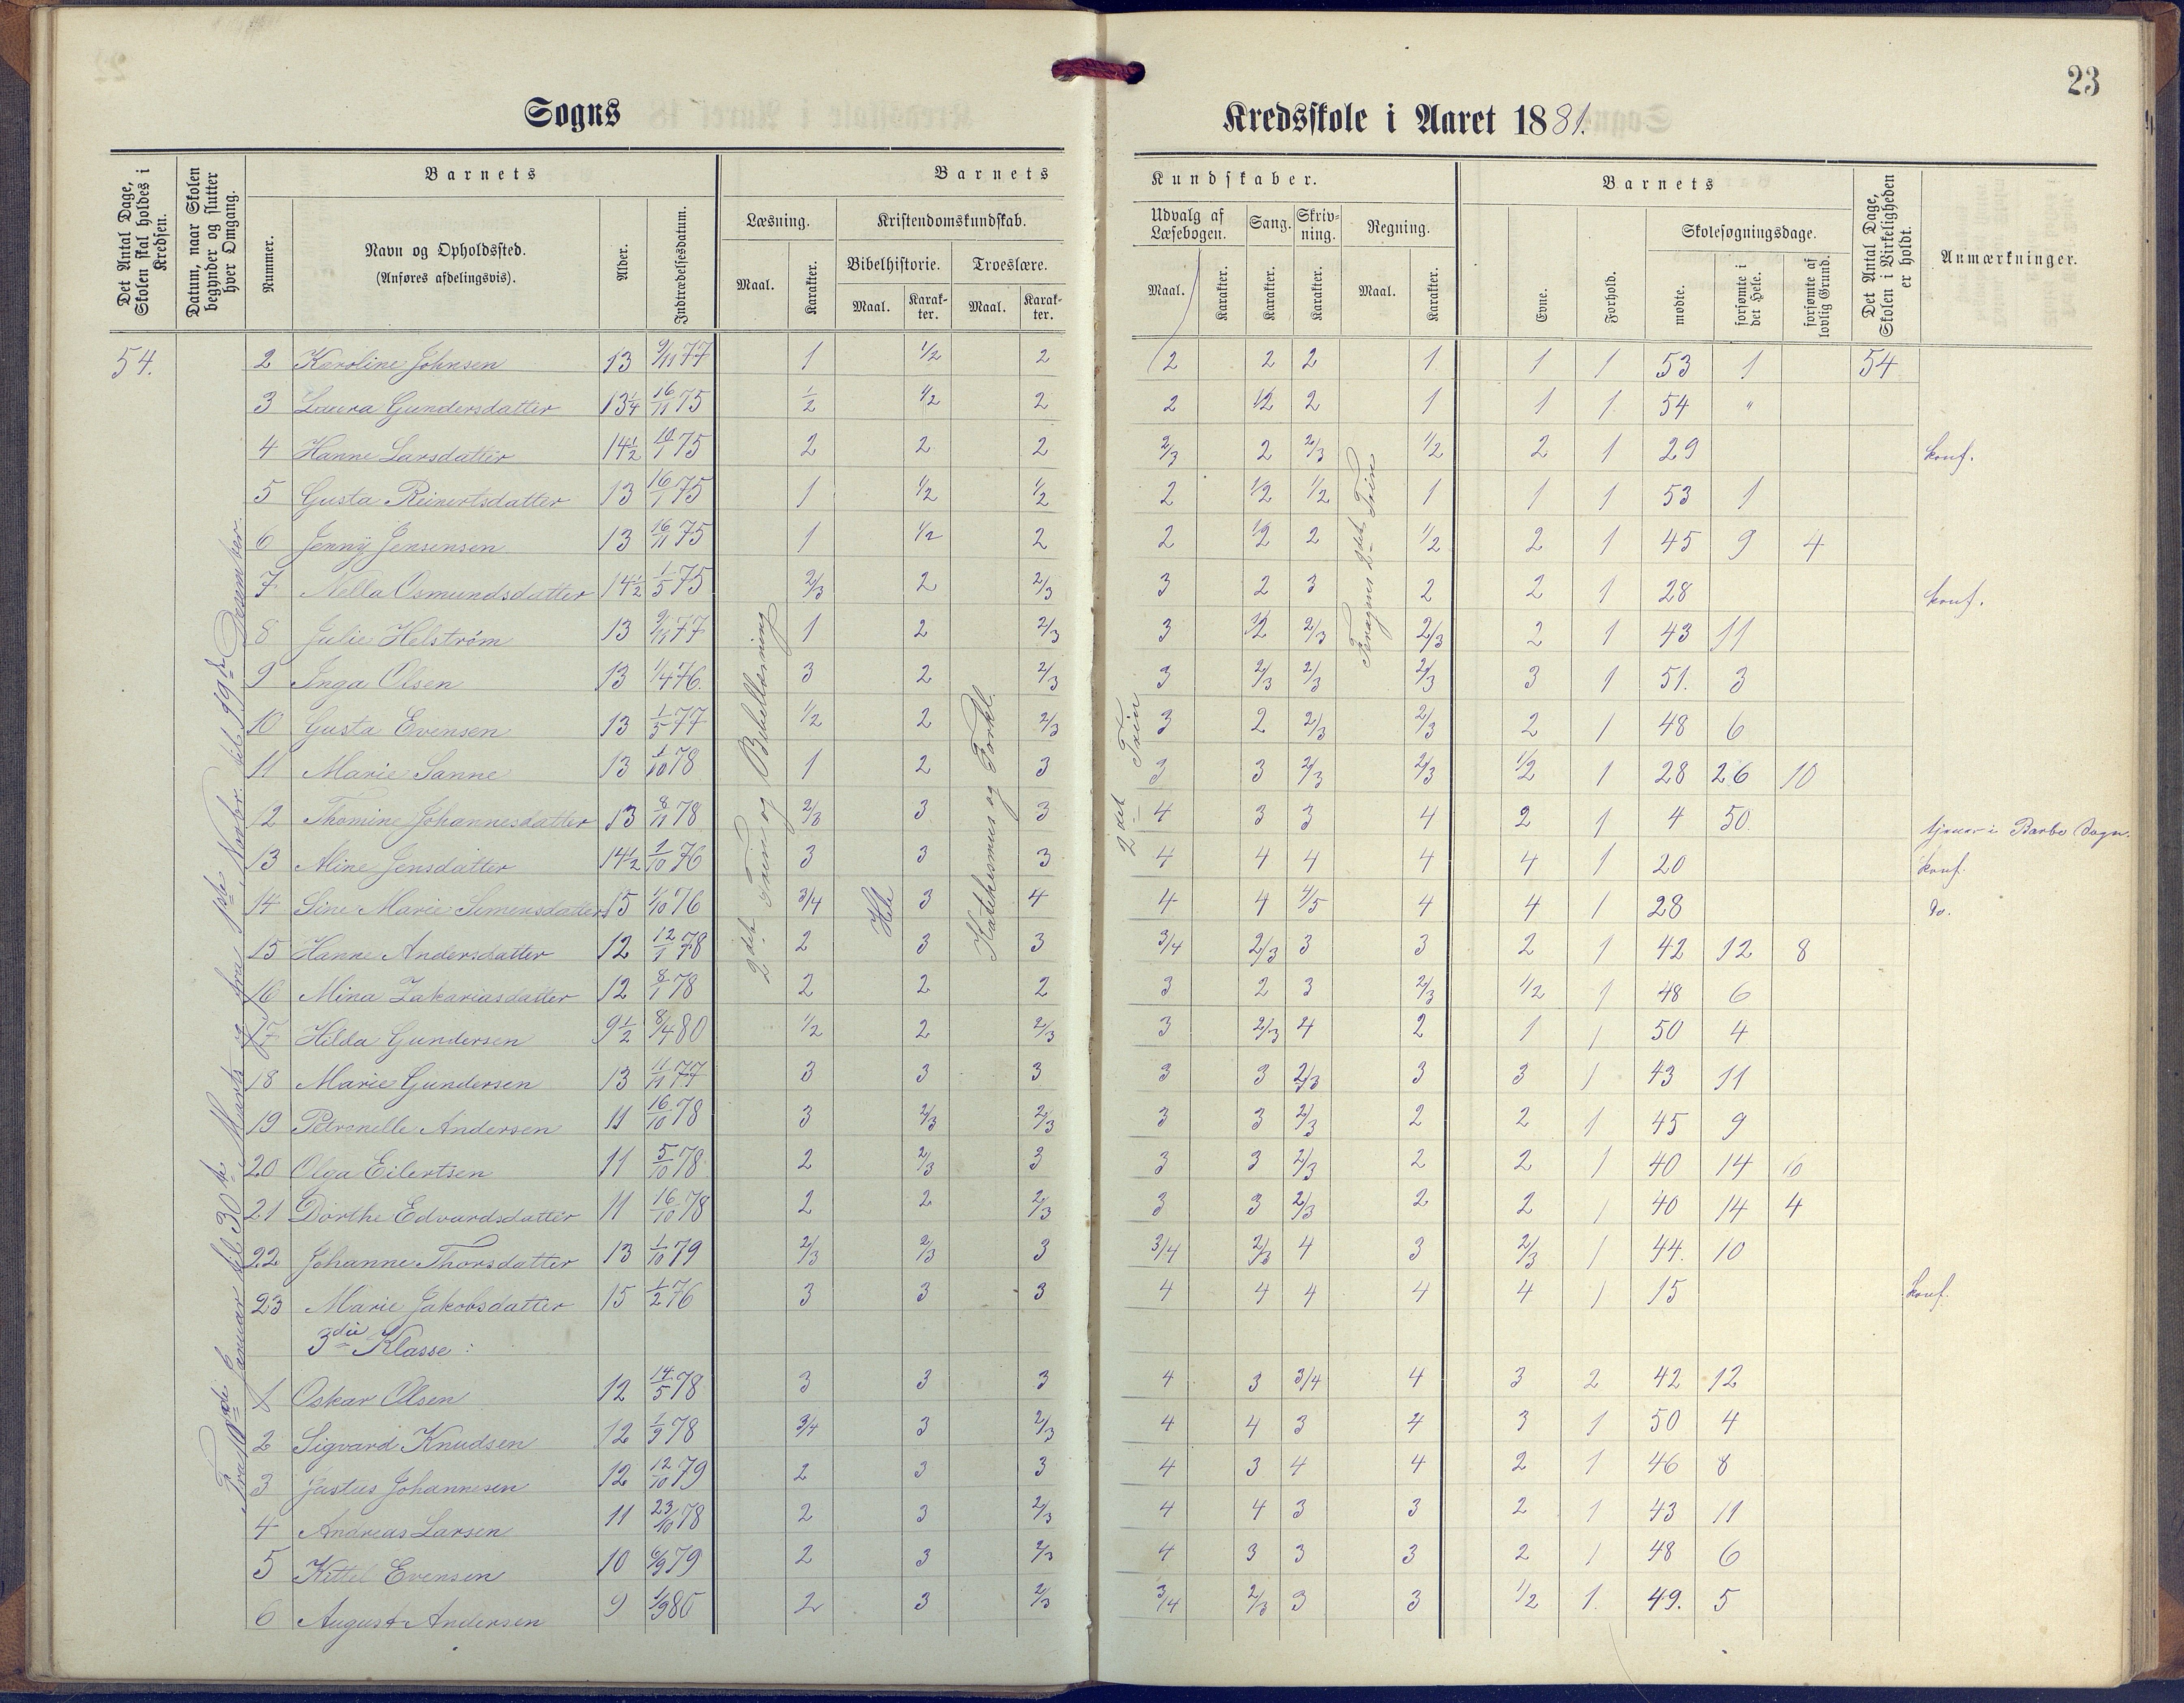 23
Sogns Kredsskole i Aaret 1881.
Det Antal Dage, Skolen skal holdes i Kredsen.
Datum, naar Skolen begynder og slutter hver Omgang.
Barnets
Nummer.
Navn og Opholdssted.
(Anføres afdelingsvis).
Alder.
Indtrædelsesdatum.
Barnets Kundskaber.
Læsning.
Maal.
Karakter.
Kristendomskundskab.
Bibelhistorie.
Maal.
Karakter.
Troeslære.
Maal.
Karakter.
Udvalg af Læsebogen.
Maal.
Karakter.
Sang.
Karakter.
Skrivning.
Karakter.
Regning.
Maal.
Karakter.
Barnets
Evne.
Forhold.
Skolesøgningsdage.
mødte.
forsømte i det Hele.
forsømte af lovlig Grund.
Det Antal Dage, Skolen i Virkeligheden er holdt.
Anmærkninger.
54. 2 Karoline Johnsen 13 9/11 77 1 1/2 2 2 2 2 1 1 1 53 1 54
3 Laura Gundersdatter 13 1/4 16/11 75 1/2 1/2 2 2 1/2 2 1 1 1 54 "
4 Hanne Larsdatter 14 1/2 75 2 2 2 2/3 2 2/3 1/2 2 1 29 konf.
5 Gusta Reinertsdatter 13 16/1 75 1 1/2 1/2 2 1/2 1/2 1 1 1 53 1
6 Jenny Jensensen 13 16/11 75 1 1/2 2 2 1/2 2 1/2 2 1 45 9 4
7 Nella Osmundsdatter 14 1/2 1/5 75 2/3 2 2/3 3 2 3 2 2 1 28 konf.
8 Julie Helström 13 9/11 77 1 2 2/3 3 1/2 2/3 2/3 2 1 43 11
9 Inga Olsen 13 1/4 76. 3 2 2/3 3 2/3 2/3 2/3 3 1 51. 3
10 Gusta Evensen 13 1/5 77 1/2 2 2/3 3 2 2/3 2/3 2 1 48 6
11 Marie Sanne 13 1/10 78 1 2 3 3 3 2/3 2/3 1/2 1 28 26 10
12 Thomine Johannesdatter 13 8/11 78 2/3 3 3 4 3 3 4 2 1 4 50 tjener i Barbo Sogn.
13 Aline Jensdatter 14 1/2 2/10 76 3 3 3 4 4 4 4 4 1 20 konf.
14 Sine Marie Simensdatter 15 1/10 76 3/4 3 4 4 4 4/5 4 4 1 28 do.
15 Hanne Andersdatter 12 12/1 78 2 3 3 3/4 2/3 3 3 2 1 42 12 8
16 Mina Zakariasdatter 12 8/1 78 2 2 2 3 2 3 2/3 1/2 1 48 6
17 Hilda Gundersen 9 1/2 8/4 80 1/2 2 2/3 3 2/3 4 2 1 1 50 4
18 Marie Gundersen 13 11/11 77 3 3 3 3 3 2/3 3 3 1 43 11
19 Petronelle Andersen 11 16/10 78 3 2/3 2/3 3 3 2/3 2 2 1 45 9
20 Olga Eilertsen 11 5/10 78 2 2/3 3 3 3 2/3 2 2 1 40 14 10
21 Dorthe Edvardsdatter 11 16/10 78 2 2 2/3 3 3 2/3 2 2 1 40 14 4
22 Johanne Thorsdatter 13 1/10 79 2/3 2/3 3 3/4 2/3 4 3 2/3 1 44. 10
23 Marie Jakobsdatter 15 1/2 76 3 3 3 4 4 4 4 4 1 15 konf.
3die Klasse:
1 Oskar Olsen 12 14/5 78 3 3 3 4 3 3/4 4 3 2 42 12
2 Sigvard Knudsen 12 1/9 78 3/4 3 2/3 4 4 3 4 3 1 50 4
3 Justus Johannesen 12 12/10 79 2 3 3 4 3 4 4 2 1 46 8
4 Andreas Larsen 11 23/10 78 2 3 2/3 4 4 3 3 2 1 43 11
5 Kittel Evensen 10 6/9 79 2 3 2/3 4 3 3 3 2 1 48 6
6 August Andersen 9 1/9 80 2 3 2/3 3/4 2/3 3 3 1/2 1. 49. 5
Fra Januar til 30te Marts og fra 1ste Novbr. til 19de Desember.
2det Trin og Bibellæsning
Hele
Katekismus og Forkl.
2det Trin
2det Trin